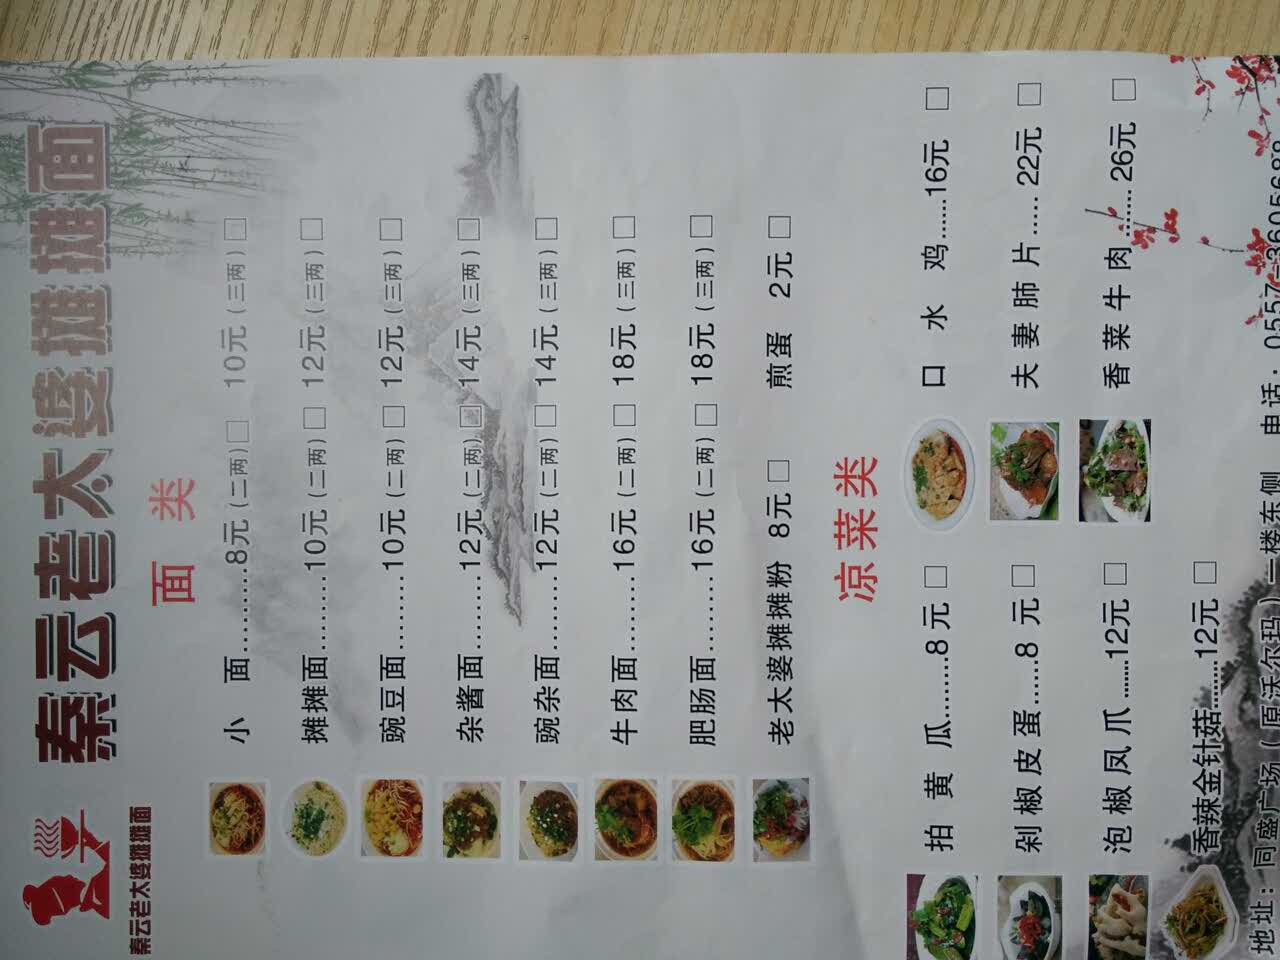 秦云老太婆摊摊面
秦云老太婆摊摊面
面 类
小 面.........8元(二两)□ 10元(三两)□
摊摊面.........10元(二两)□ 12元(三两)□
豌豆面.........10元(二两)□ 12元(三两)□
杂酱面.........12元(二两)□ 14元(三两)□
豌杂面.........12元(二两)□ 14元(三两)□
牛肉面.........16元(二两)□ 18元(三两)□
肥肠面.........16元(二两)□ 18元(三两)□
老太婆摊摊粉 8元□ 煎蛋 2元□
凉菜类
拍 黄 瓜........8元□ 口 水 鸡......16元□
剁椒皮蛋......8 元□ 夫妻肺片...... 22元□
泡椒凤爪........12元□ 香菜牛肉........ 26元□
香辣金针菇........12元□
地址：同盛广场（原沃尔玛）一楼东侧 电话：0557-3605688